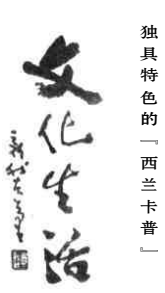 独具特色的﹃西兰卡普﹄
文化生活